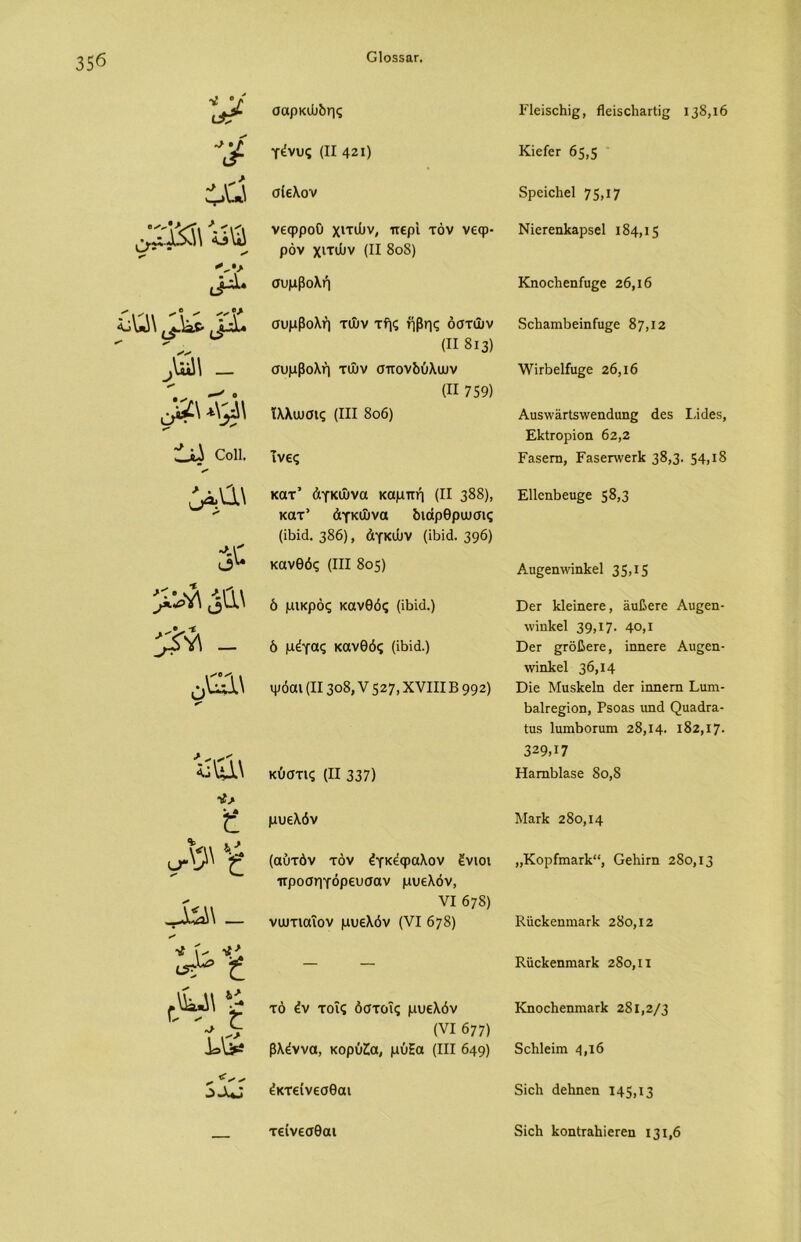 356
Glossar.
لحمىّ σαρκώδης Fleischig, fleischartig 138,16
لحى γένυς (II 421) Kiefer 65,5
σίελον Speichel 75,17
νεφροῦ χιτών, περὶ τὸν νεφ- Nierenkapsel 184,15
ρὸν χιτών (II 808)
συμβολή Knochenfuge 26,16
συμβολὴ τῶν τῆς ἥβης ὀστῶν Schambeinfuge 87,12
(II 813)
الفقار — συμβολὴ τῶν σπονδύλων Wirbelfuge 26,16
(II 759)
التواء الجفن ἴλλωσις (III 806) Auswärtswendung des Lides,
Ektropion 62,2
ليف Coll. ἶνες Fasern, Faserwerk 38,3. 54,18
κατ’ ἀγκῶνα καμπή (II 388), Ellenbeuge 58,3
κατ’ ἀγκῶνα διάρθρωσις
(ibid. 386), ἀγκών (ibid. 396)
مأق κανθός (III 805) Augenwinkel 35,15
المأق الأصغر ὁ μικρὸς κανθός (ibid.) Der kleinere, äußere Augen-
winkel 39,17. 40,1
الأكبر — ὁ μέγας κανθός (ibid.) Der größere, innere Augen-
winkel 36,14
المتنان ψόαι (II 308, V 527, XVIII B 992) Die Muskeln der innern Lum-
balregion, Psoas und Quadra-
tus lumborum 28,14. 182,17.
329,17
المثانة κύστις (II 337) Harnblase 80,8
مخّ μυελόν Mark 280,14
مخّ الرأس (αὐτὸν τὸν ἐγκέφαλον ἔνιοι „Kopfmark“, Gehirn 280,13
προσηγόρευσαν μυελόν,
VI 678)
الصلب — νωτιαῖον μυελόν (VI 678) Rückenmark 280,12
— — Rückenmark 280,11
مخّ العظام τὸ ἐν τοῖς ὀστοῖς μυελόν Knochenmark 281,2/3
(VI 677)
مخاط βλέννα, κορύζα, μύξα (III 649) Schleim 4,16
تمدّد ἐκτείνεσθαι Sich dehnen 145,13
— τείνεσθαι Sich kontrahieren 131,6